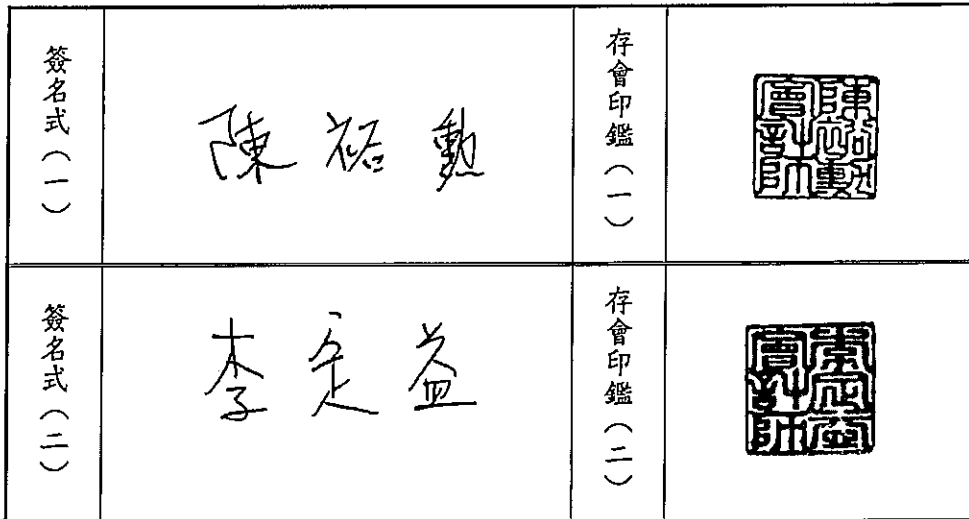 簽名式（一）
陳裕勳
存會印鑑（一）
陳裕勳會計師
簽名式（二）
李定益
存會印鑑（二）
李定益會計師